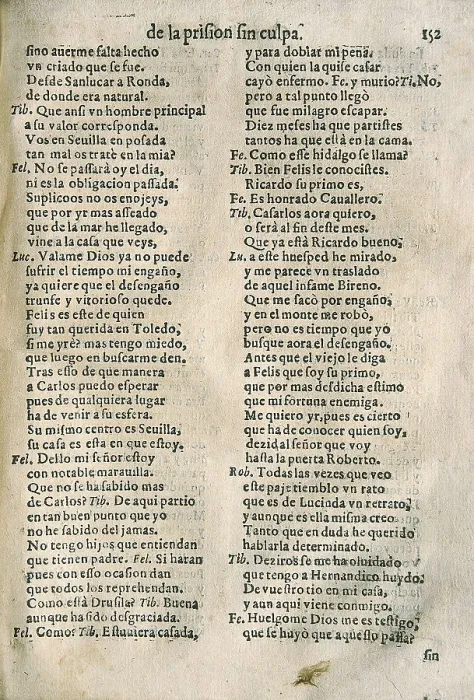 de la prision sin culpa.
152
sino auerme falta hecho
vn criado que se fue.
Desde Sanlucar a Ronda,
de donde era natural.
Tib. Que ansi vn hombre principal
a su valor corresponda.
Vos en Seuilla en posada
tan mal os tratè en la mia?
Fel. No se passarà oy el dia,
ni es la obligacion passada.
Suplicoos no os enojeys,
que por yr mas asseado
que de la mar he llegado,
vine a la casa que veys,
Luc. Valame Dios ya no puede
sufrir el tiempo mi engaño,
ya quiere que el desengaño
trunfe y vitorioso quede.
Felis es este de quien
fuy tan querida en Toledo,
si me yrè? mas tengo miedo,
que luego en buscarme den.
Tras esso de que manera
a Carlos puedo esperar
pues de qualquiera lugar
ha de venir a su esfera.
Su mismo centro es Seuilla,
su casa es esta en que estoy.
Fel. Desso mi señor estoy
con notable marauilla.
Que no se ha sabido mas
de Carlos? Tib. De aqui partio
en tan buen punto que yo
no he sabido del jamas.
No tengo hijos que entiendan
que tienen padre. Fel. Si haran
pues con esso ocasion dan
que todos los reprehendan.
Como està Drusila? Tib. Buena
aunque ha sido desgraciada.
Fel. Como? Tib. Estuuiera casada,
y para doblar mi pena.
Con quien la quise casar
cayò enfermo. Fe. y murio? Ti. No,
pero a tal punto llegò
que fue milagro escapar.
Diez meses ha que partistes
tantos ha que està en la cama.
Fe. Como esse hidalgo se llama?
Tib. Bien Felis le conocistes.
Ricardo su primo es,
Fe. Es honrado Cauallero.
Tib. Casarlos aora quiero,
o serà al fin deste mes.
Que ya està Ricardo bueno,
Lu. a este huesped he mirado,
y me parece vn traslado
de aquel infame Bireno.
Que me sacò por engaño,
y en el monte me robò,
pero no es tiempo que yo
busque aora el desengaño.
Antes que el viejo le diga
a Felis que soy su primo,
que por mas desdicha estimo
que mi fortuna enemiga.
Me quiero yr, pues es cierto
que ha de conocer quien soy,
dezid al señor que voy
hasta la puerta Roberto.
Rob. Todas las vezes que veo
este paje tiemblo vn rato
que es de Lucinda vn retrato,
y aunque es ella misma creo.
Tanto que en duda he querido
hablarla determinado.
Tib. Deziros se me ha oluidado
que tengo a Hernandico huydo.
De vuestro tio en mi casa,
y aun aqui viene conmigo.
Fe. Huelgome Dios me es testigo,
que se huyò que aquesso passa?
sin